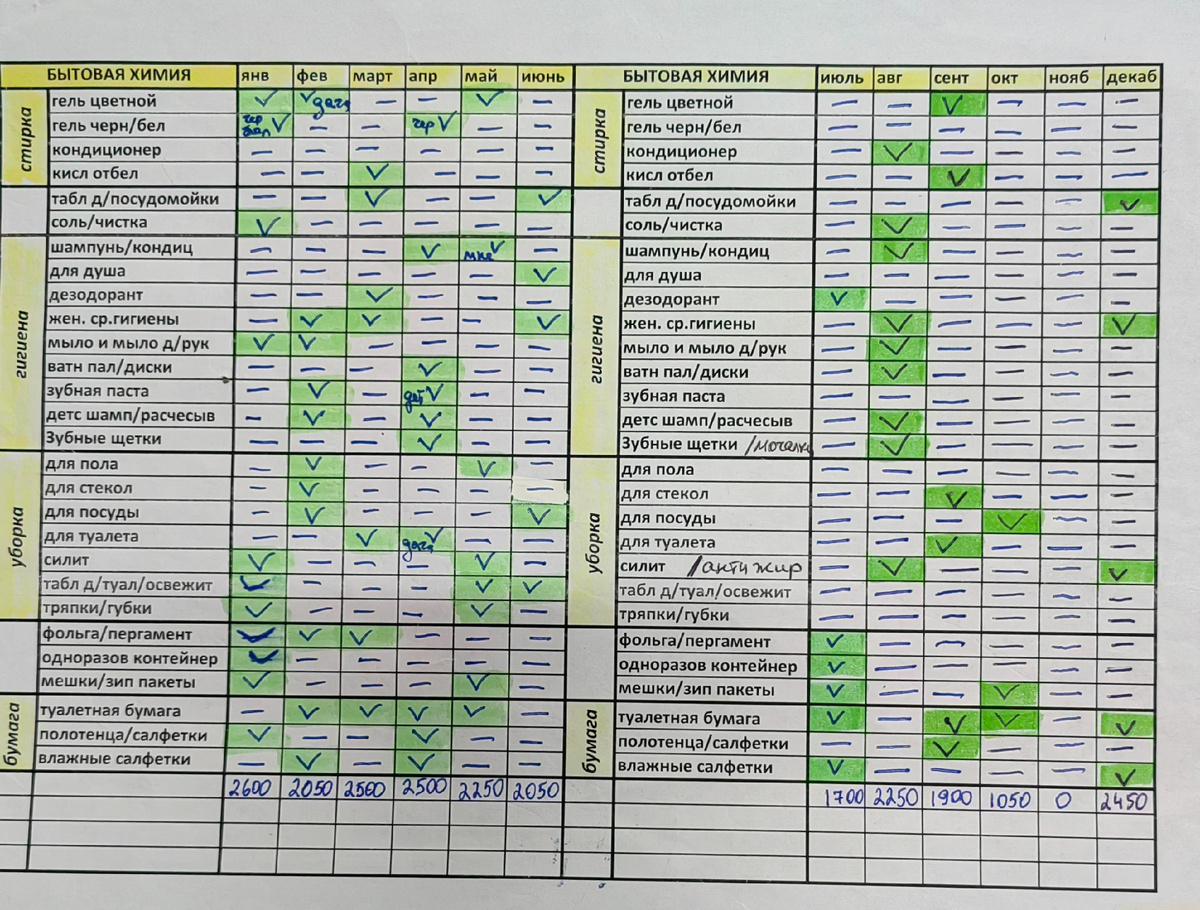 БЫТОВАЯ ХИМИЯ янв фев март апр май июнь
стирка
гель цветной
гель черн/бел чер бел чер
кондиционер
кисл отбел
табл д/посудомойки
соль/чистка
гигиена
шампунь/кондиц мне
для душа
дезодорант
жен. ср.гигиены
мыло и мыло д/рук
ватн пал/диски
зубная паста дет
детс шамп/расчесыв
Зубные щетки
уборка
для пола
для стекол
для посуды
для туалета
силит
табл д/туал/освежит
тряпки/губки
фольга/пергамент
одноразов контейнер
мешки/зип пакеты
бумага
туалетная бумага
полотенца/салфетки
влажные салфетки
2600 2050 2500 2500 2250 2050
БЫТОВАЯ ХИМИЯ июль авг сент окт нояб декаб
стирка
гель цветной
гель черн/бел
кондиционер
кисл отбел
табл д/посудомойки
соль/чистка
гигиена
шампунь/кондиц
для душа
дезодорант
жен. ср.гигиены
мыло и мыло д/рук
ватн пал/диски
зубная паста
детс шамп/расчесыв
Зубные щетки /мочалки
уборка
для пола
для стекол
для посуды
для туалета
силит /антижир
табл д/туал/освежит
тряпки/губки
фольга/пергамент
одноразов контейнер
мешки/зип пакеты
бумага
туалетная бумага
полотенца/салфетки
влажные салфетки
1700 2250 1900 1050 0 2450